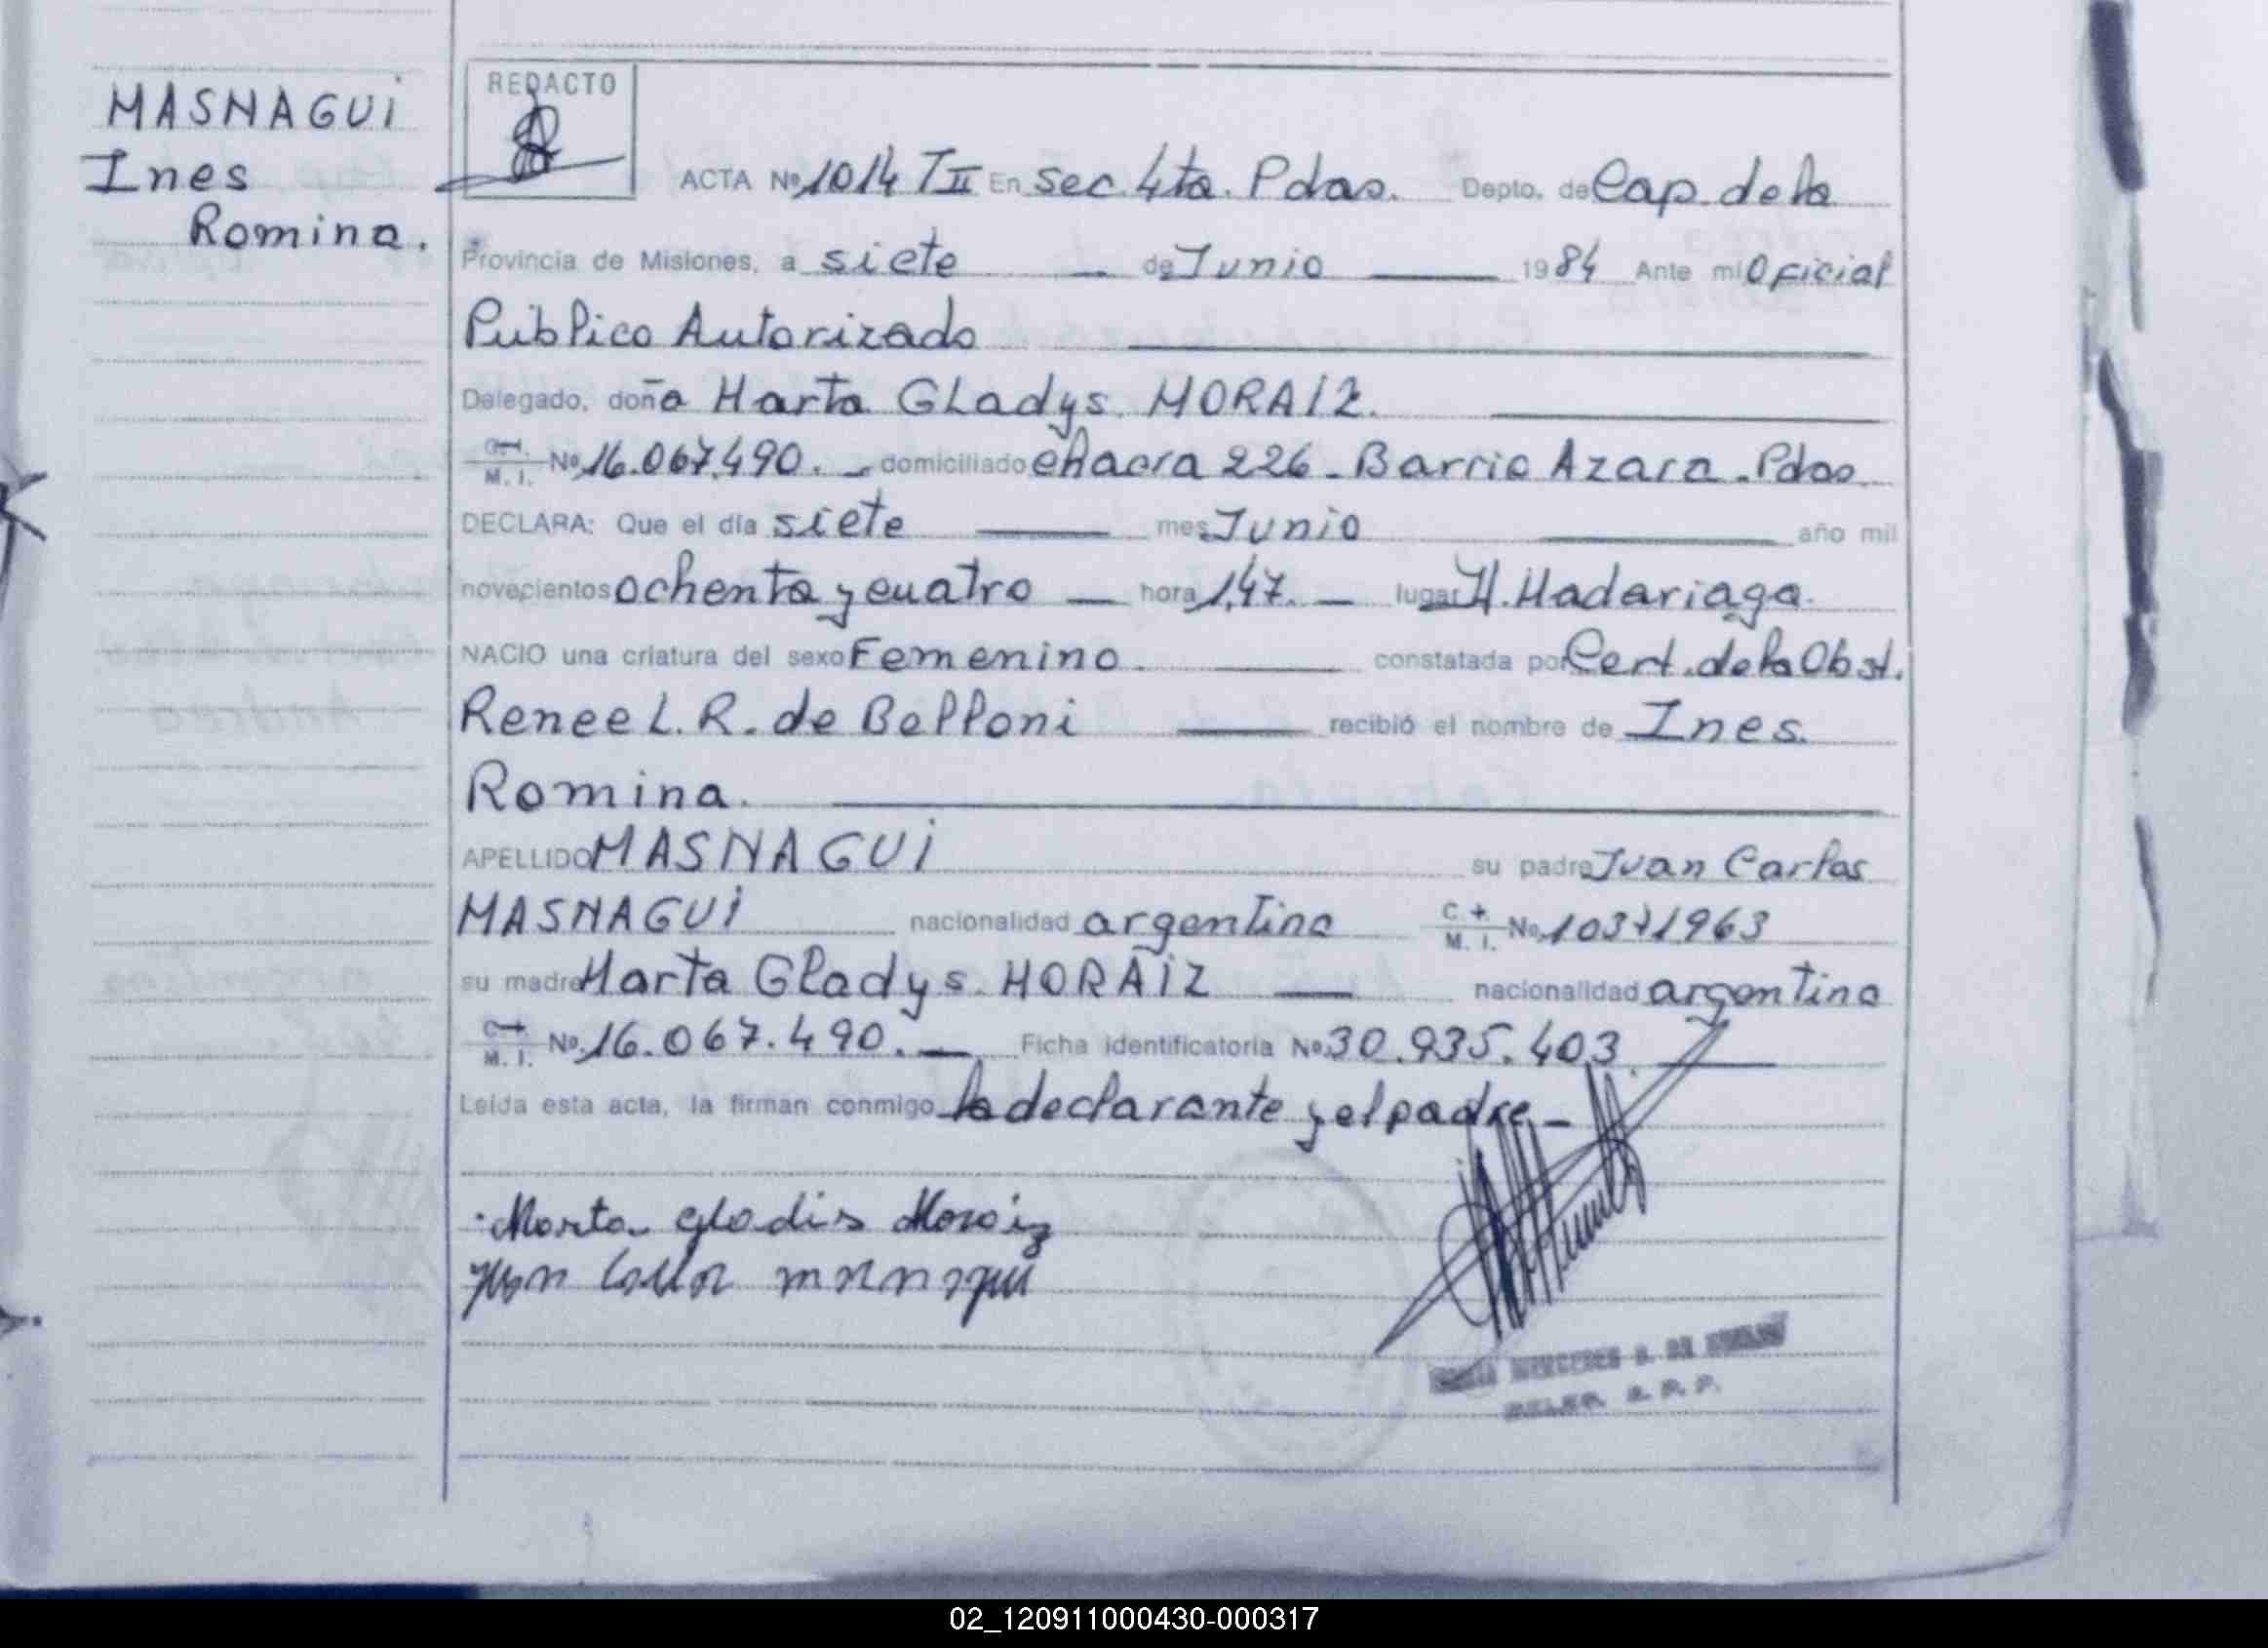 MASNAGUI
Ines
Romina.
REDACTO
ACTA Nº 1014 TII En Sec. 4ta. Pdas. Depto. de Cap. de la
Provincia de Misiones, a siete de Junio 1984 Ante mi Oficial
Público Autorizado
Delegado, doña Marta Gladys. MORAIZ.
C.I. M. I. Nº 16.067.490. domiciliado chacra 226 - Barrio Azara - Pdas.
DECLARA: Que el día siete mes Junio año mil
novecientos ochenta y cuatro hora 1,47. lugar H. Madariaga.
NACIO una criatura del sexo Femenino. constatada por Cert. de la Obst.
Renee L. R. de Belloni recibió el nombre de Ines.
Romina.
APELLIDO MASNAGUI su padre Juan Carlos
MASNAGUI nacionalidad argentina C. I. M. I. Nº 10371963
su madre Marta Gladys. MORAIZ nacionalidad argentina
C.I. M. I. Nº 16.067.490. Ficha identificatoria Nº 30.935.403
Leída esta acta, la firman conmigo la declarante y el padre.-
Marta Gladis Moraiz
Juan
MERCEDES DE
02_120911000430-000317